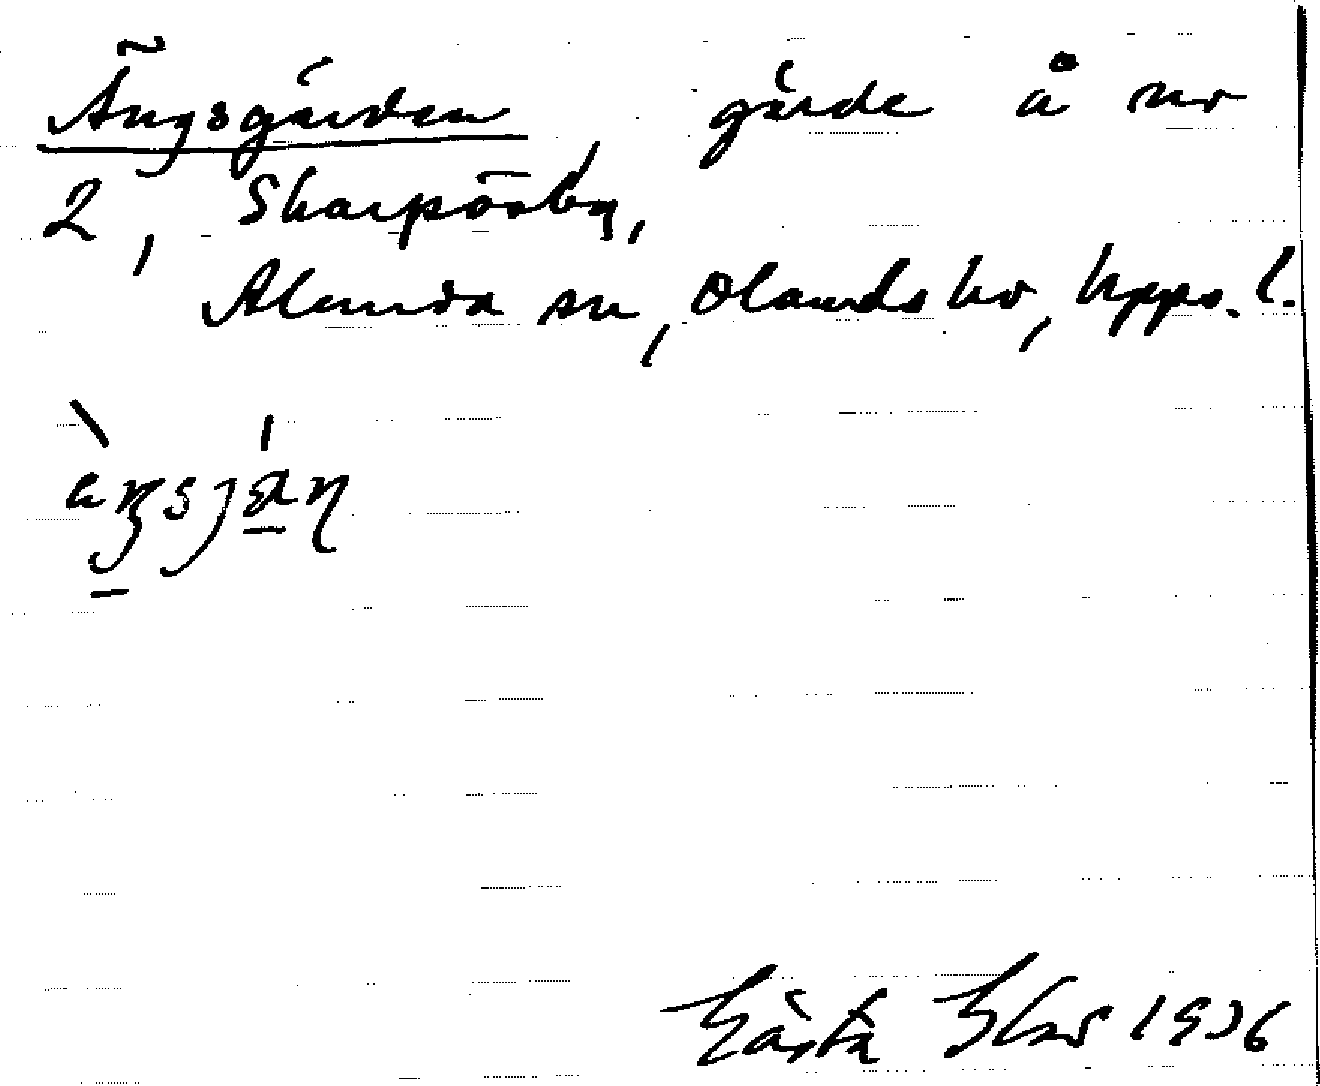 Ängsgärden gärde å nr
2, Skarpösby,
Alunda sn, Olands hd, Upps. l.
Gösta 1936